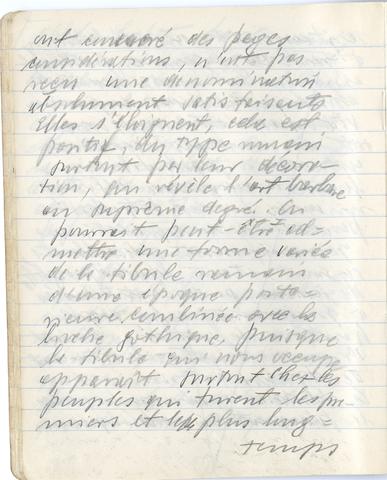 ont consacré des pages
considérations, n'ont pas
reçu une dénomination
absolument satisfaisante
Elles s'éloignent, cela est
positif, du type romain
surtout par leur décora=
tion, qui révèle l'art barbare
au suprême degré. On
pourrait peut-être ad=
mettre une forme variée
de la fibule romain
d'une époque posté=
rieure combinée avec la
broche gothique, puisque
la fibule qui nous occupe
apparaît surtout chez les
peuples qui furent les pre=
miers et le plus long=
temps